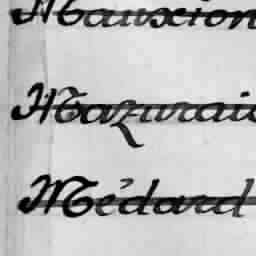 Mauxion
Mazurais
Médard